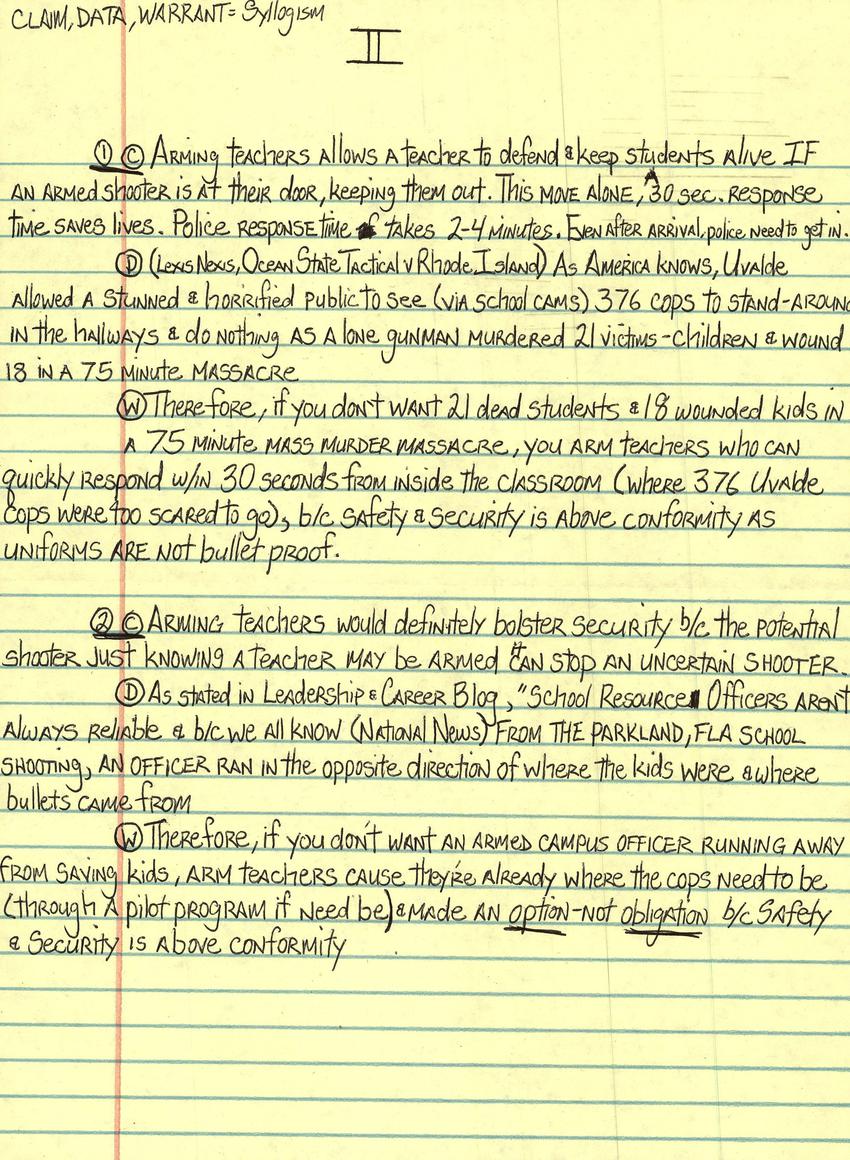 CLAIM, DATA, WARRANT = Syllogism
II
① Ⓒ Arming teachers allows a teacher to defend & keep students alive IF
an armed shooter is at their door, keeping them out. This move alone, a 30 sec. response
time saves lives. Police response time takes 2-4 minutes. Even after arrival, police need to get in.
Ⓓ (Lexis Nexis, Ocean State Tactical v Rhode Island) As America knows, Uvalde
allowed a stunned & horrified public to see (via school cams) 376 cops to stand-around
in the hallways & do nothing as a lone gunman murdered 21 victims - children & wound
18 in a 75 minute massacre
Ⓦ Therefore, if you don't want 21 dead students & 18 wounded kids in
a 75 minute mass murder massacre, you arm teachers who can
quickly respond w/in 30 seconds from inside the classroom (where 376 Uvalde
cops were too scared to go), b/c safety & security is above conformity as
uniforms are not bullet proof.
② Ⓒ Arming teachers would definitely bolster security b/c the potential
shooter just knowing a teacher may be armed can stop an uncertain shooter.
Ⓓ As stated in Leadership & Career Blog, "School Resource Officers aren't
always reliable & b/c we all know (National News) from the Parkland, FLA school
shooting, an officer ran in the opposite direction of where the kids were & where
bullets came from
Ⓦ Therefore, if you don't want an armed campus officer running away
from saving kids, arm teachers cause they're already where the cops need to be
(through a pilot program if need be) & made an option - not obligation b/c safety
& security is above conformity